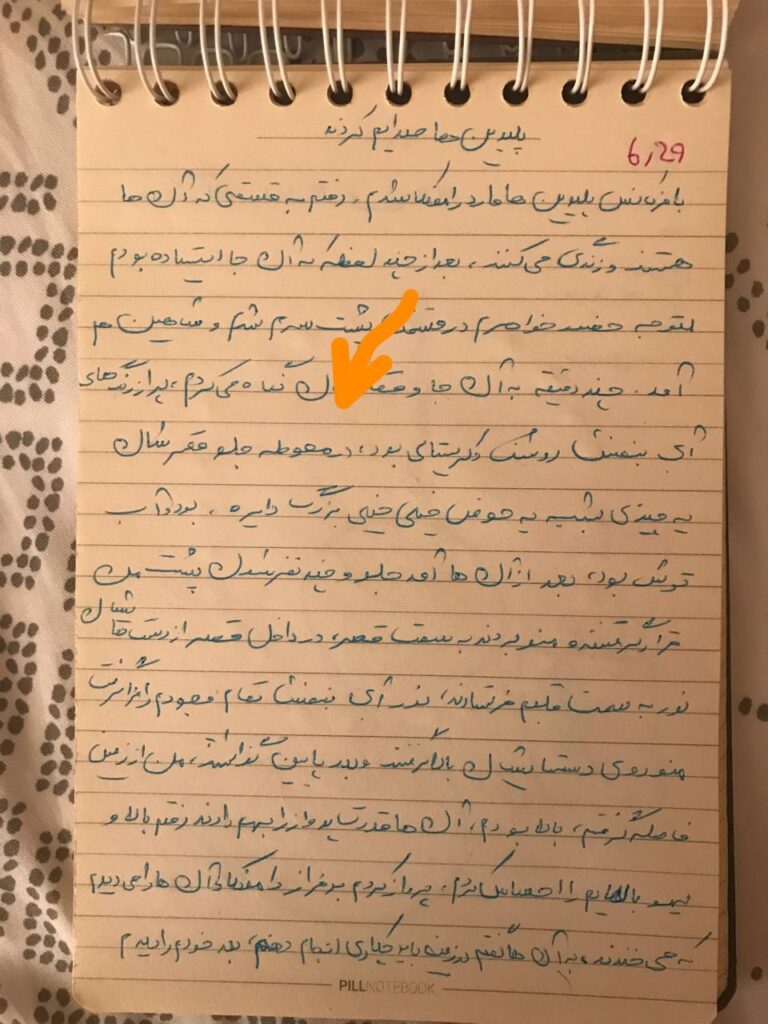 پلیدین ها صدایم کردند
6,29
با فرکانس پلیدین ها وارد رامکا شدم، رفتم به قسمتی که آن ها
هستند و زندگی می کنند، بعد از چند لحظه که آن جا ایستاده بودم
متوجه حضور خواهرم در قسمت پشت سرم شدم و شاهین هم
آمد. چند دقیقه به آن جا و نگاه می کردم، پر از رنگ های
آبی بنفش روشن و کریستالی بود، در محوطه جلو قصرشان
یه چیزی شبیه یه حوض خیلی خیلی بزرگ دایره. بود و آب
توش بود، بعد از آن ها آمد جلو و چند نفرشان پشت من
قرار گرفتند و منو بردند به سمت قصر، در داخل قصر از دست هاشان
نور به سمت قلبم فرستادند، نور آبی بنفش تمام وجودم را فرا گرفت
منو روی دستاشان بالا گرفتند و بعد پایین گذاشتند، من از زمین
فاصله گرفتم، بالا بودم، آن ها قدرت پرواز را بهم دادند رفتم بالا و
بالهایم را احساس کردم، پرواز کردم بر فراز رامکا آن ها را می دیدم
که می خندند، به آن ها گفتم در زمین باید چیکاری انجام دهم، بعد خودم را دیدم
PILLNOTEBOOK